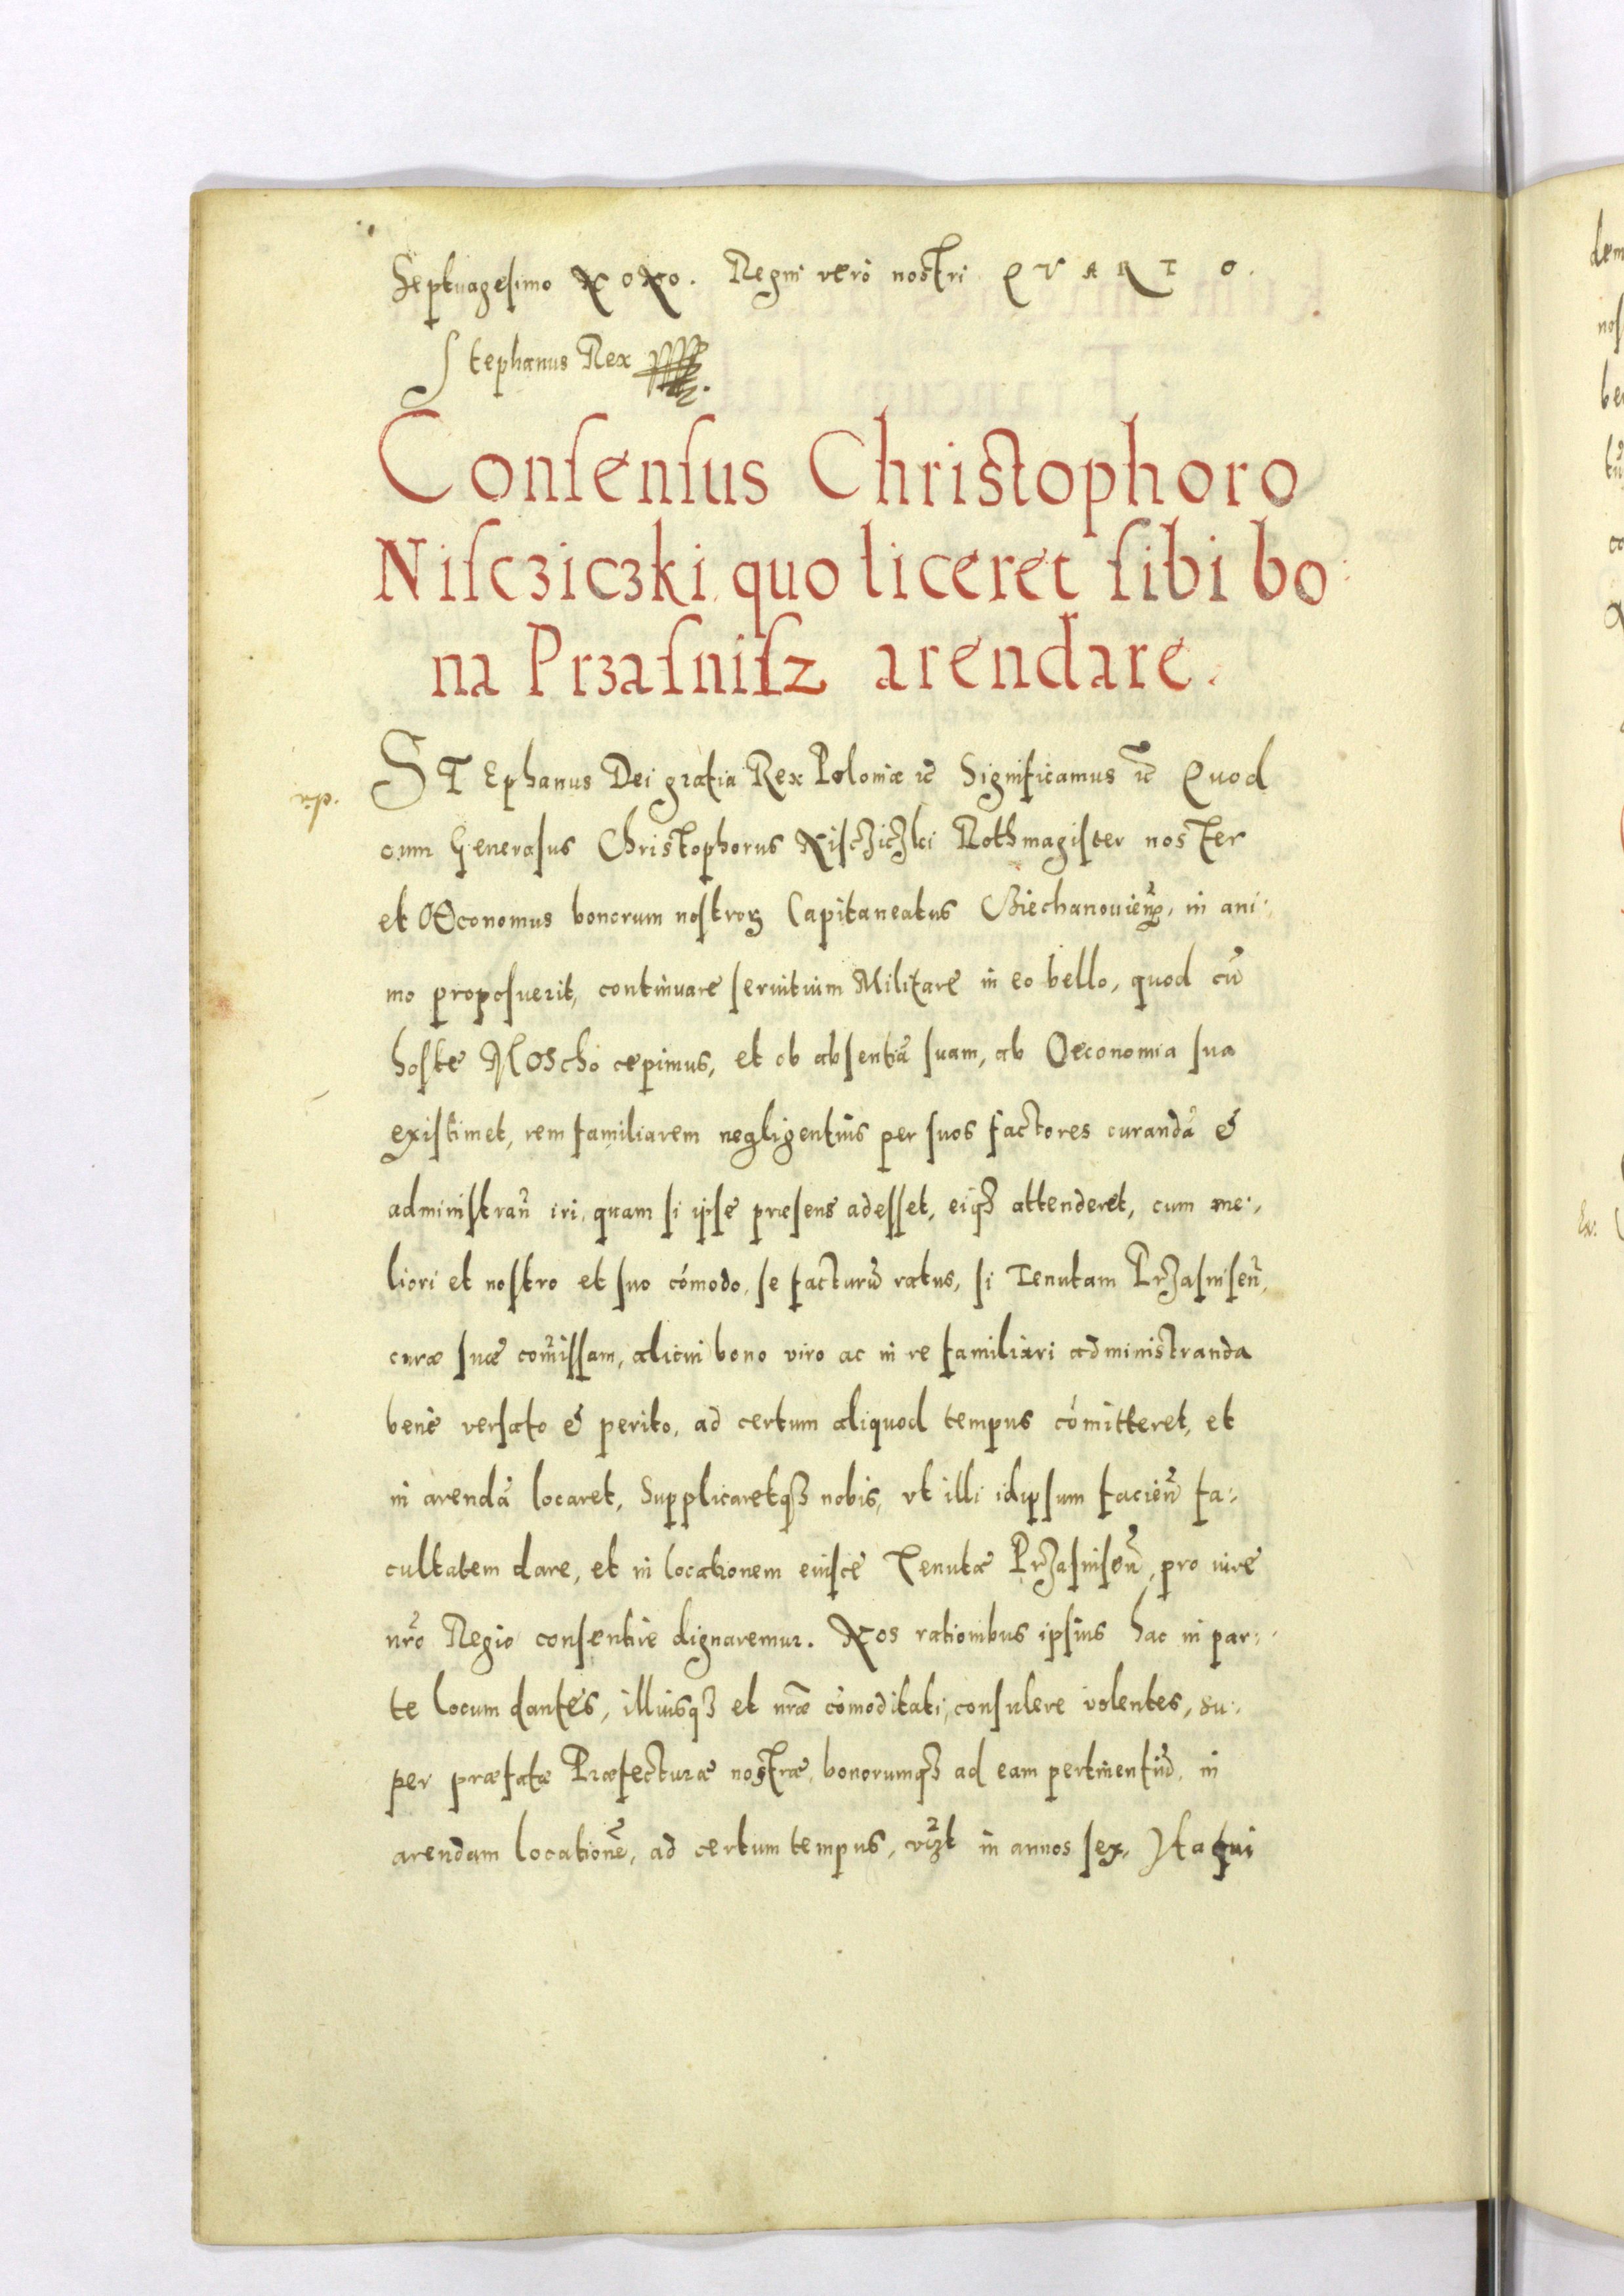 Septuagesimo NONO. Regni verò nostri QVARTO.
Stephanus Rex
Conſenſus Christophoro
Niſcziczki quo liceret ſibi bo:
na Przaſniſz arendare.
STEphanus Dei gratia Rex Poloniæ ꝛc̃ Significamus ꝛc̃ Quod
r.p.
cum Generoſus Christophorus Niſcziczki Rothmagiſter noster
et OEconomus bonorum noſtroꝝ Capitaneatus Ciechanouieñ, in ani:
mo propoſuerit, continuare ſeruitium Militare in eo bello, quod cũ
hoſte Moscho cepimus, et ob abſentiã ſuam, ab Oeconomia ſua
exiſtimet, rem familiarem negligentiùs per ſuos factores curandã &
adminiſtrañ iri, quam ſi ipſe præſens adeſſet, eiqꝫ attenderet, cum me:
liori et noſtro et ſuo cõmodo, ſe facturũ ratus, ſi Tenutam Przaſniſeñ,
curæ ſuæ cõmiſſam, alicui bono viro ac in re familiari administranda
benè verſato & perito, ad certum aliquod tempus cõmitteret, et
in arendã locaret, Supplicaretqꝫ nobis, vt illi idipſum facieñ fa:
cultatem dare, et in locationem eiuſce Tenutæ Przaſniſeñ, pro iure
nr̃o Regio conſentire dignaremur. Nos rationibus ipſius hac in par:
te locum dantes, illiuſqꝫ et nr̃æ cõmoditati, conſulere volentes, su:
per præfatæ Præfecturæ nostræ, bonorumqꝫ ad eam pertinentiũ, in
arendam locationẽ, ad certum tempus, vꝫt in annos ſex, Ita qui